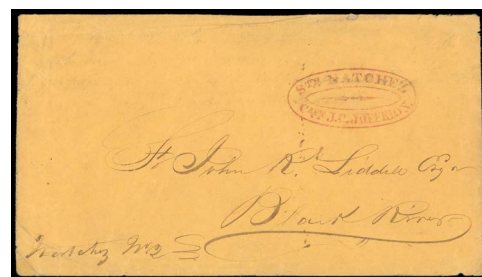 STR NATCHEZ,
St John R. Liddell Esqr
Black River
Natchez Ms